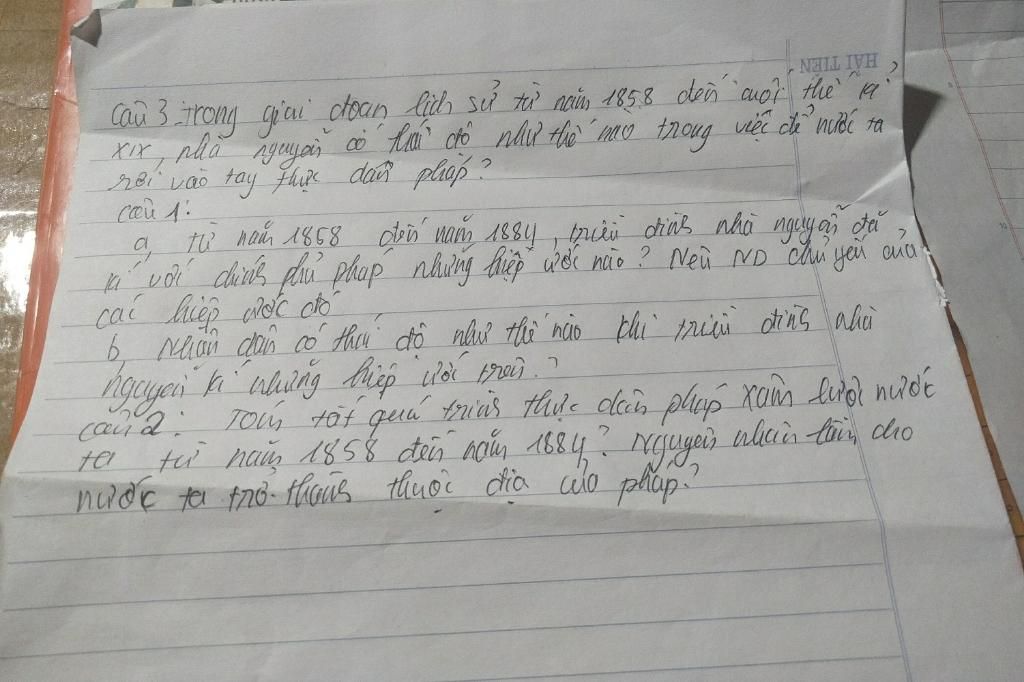 HẢI TIẾN
Câu 3. trong giai đoạn lịch sử từ năm 1858 đến cuối thế kỉ
XIX, nhà nguyễn có thái độ như thế nào trong việc để nước ta
rơi vào tay thực dân pháp?
Câu 1:
a, từ năm 1858 đến năm 1884, triều đình nhà nguyễn đã
kí với chính phủ pháp những hiệp ước nào? Nêu ND chủ yếu của
các hiệp ước đó
b, Nhân dân có thái độ như thế nào khi triều đình nhà
nguyễn kí những hiệp ước trên.?
câu 2: Tóm tắt quá trình thực dân pháp xâm lược nước
ta từ năm 1858 đến năm 1884? Nguyên nhân làm cho
nước ta trở thành thuộc địa của pháp?